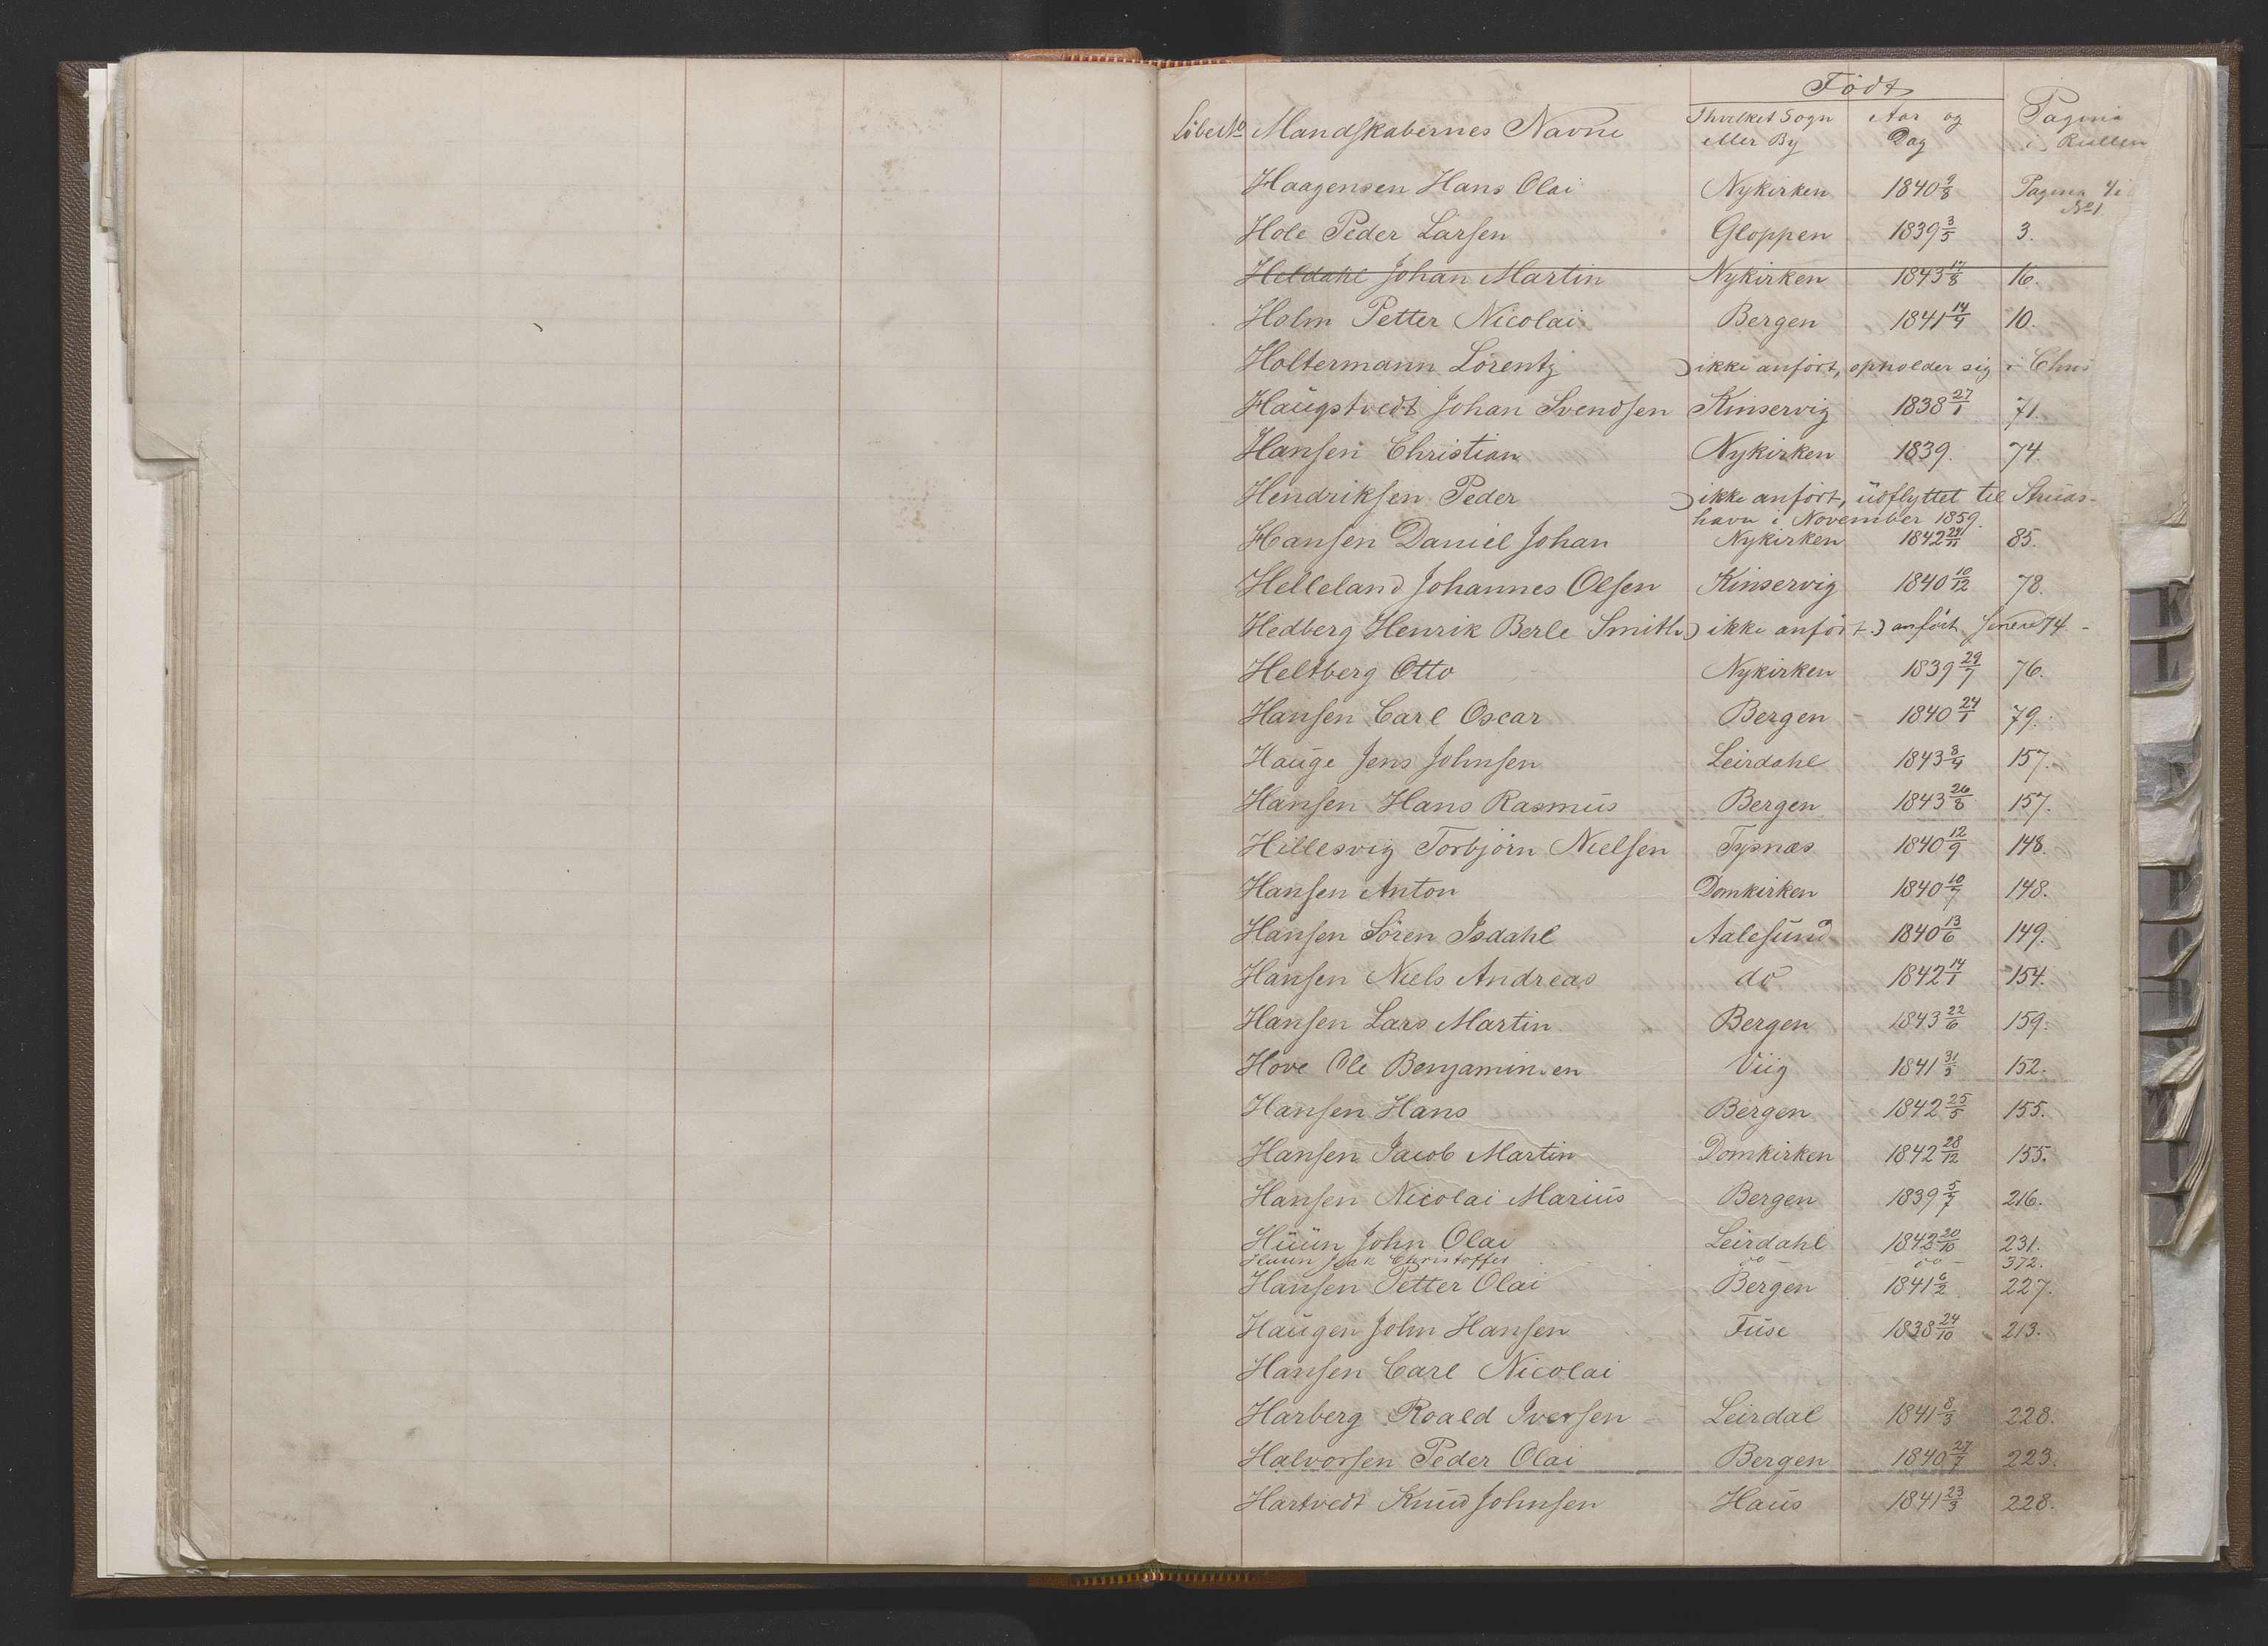 Födt
Löbe No Mandskabernes Navne I hvilket Sogn eller By Aar og Dag Pagina i Rullen
Haagensen Hans Olai Nykirken 1840 9/8 Pagina 4 i No 1
Hole Peder Larsen Gloppen 1839 3/5 3.
Heldahl Johan Martin Nykirken 1843 17/8 16.
Holm Petter Nicolai Bergen 1841 14/4 10.
Holtermann Lorentz ) ikke anfört, opholder sig i Chris
Haugstvedt Johan Svendsen Kinservig 1838 27/1 71.
Hansen Christian Nykirken 1839. 74.
Hendriksen Peder ) ikke anfört, udflyttet til
havn i November 1859.
Hansen Daniel Johan Nykirken 1842 24/11 85.
Helleland Johannes Olsen Kinservig 1840 10/12 78.
Hedberg Henrik Berle Smith ) ikke anfört ) anfört senere 74
Heltberg Otto Nykirken 1839 29/7 76.
Hansen Carl Oscar Bergen 1840 24/1 79.
Hauge Jens Johnsen Leirdahl 1843 8/4 157.
Hansen Hans Rasmus Bergen 1843 26/8 157.
Hillesvig Torbjörn Nielsen Tysnæs 1840 12/9 148.
Hansen Anton Domkirken 1840 10/7 148.
Hansen Sören Isdahl Aalesund 1840 13/6 149.
Hansen Niels Andreas do 1842 14/1 154.
Hansen Lars Martin Bergen 1843 22/6 159.
Hove Ole Benjaminsen Viig 1841 31/3 152.
Hansen Hans Bergen 1842 25/5 155.
Hansen Jacob Martin Domkirken 1842 28/12 155.
Hansen Nicolai Marius Bergen 1839 5/7 216.
Huun John Olai Leirdahl 1842 20/10 231.
Huun Isak Christoffer do do 372.
Hansen Petter Olai Bergen 1841 6/2 227.
Haugen John Hansen Fuse 1838 24/10 213.
Hansen Carl Nicolai
Harberg Roald Iversen Leirdal 1841 8/3 228.
Halvorsen Peder Olai Bergen 1840 27/7 223.
Hartvedt Knud Johnsen Haus 1841 23/3 228.
K
L
P
R